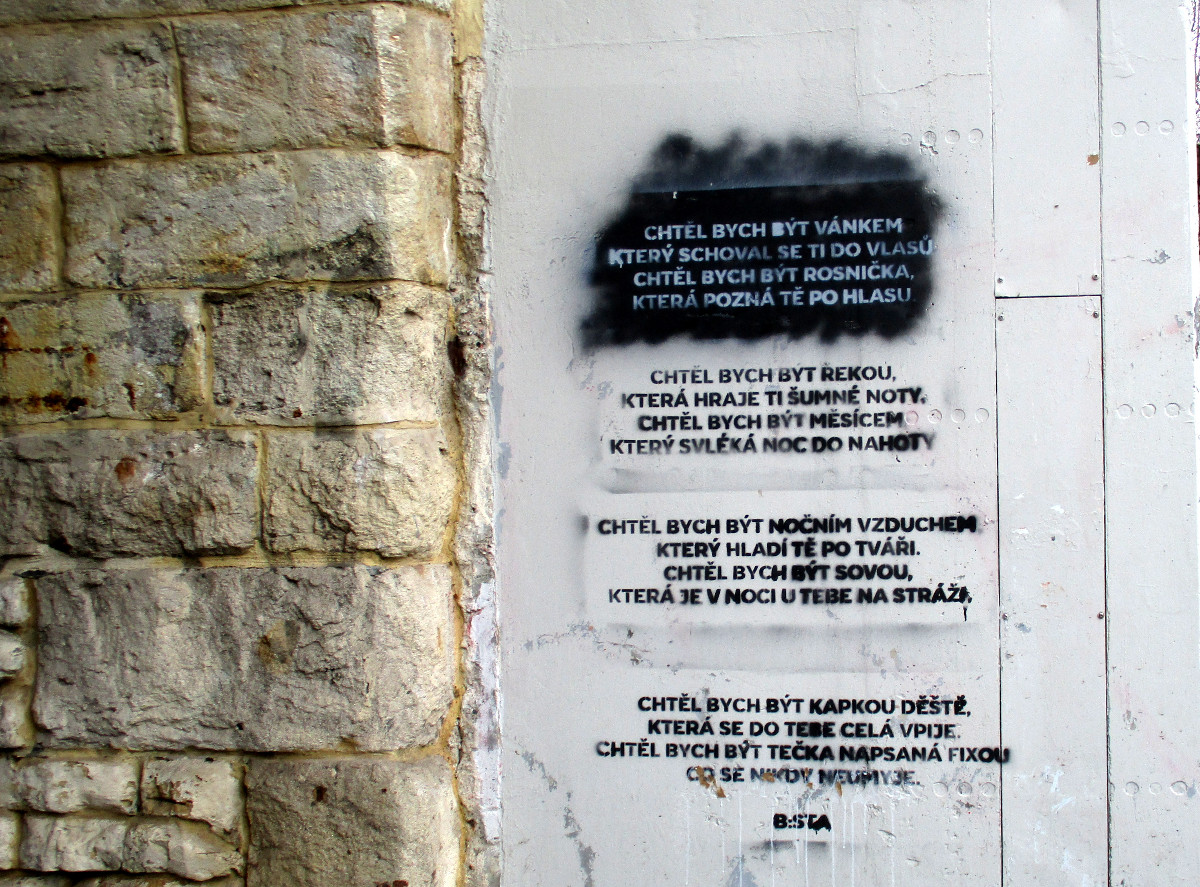 CHTĚL BYCH BÝT VÁNKEM
KTERÝ SCHOVAL SE TI DO VLASŮ
CHTĚL BYCH BÝT ROSNIČKA,
KTERÁ POZNÁ TĚ PO HLASU.
CHTĚL BYCH BÝT ŘEKOU,
KTERÁ HRAJE TI ŠUMNÉ NOTY.
CHTĚL BYCH BÝT MĚSÍCEM
KTERÝ SVLÉKÁ NOC DO NAHOTY
CHTĚL BYCH BÝT NOČNÍM VZDUCHEM,
KTERÝ HLADÍ TĚ PO TVÁŘI.
CHTĚL BYCH BÝT SOVOU,
KTERÁ JE V NOCI U TEBE NA STRÁŽI,
CHTĚL BYCH BÝT KAPKOU DĚŠTĚ,
KTERÁ SE DO TEBE CELÁ VPIJE.
CHTĚL BYCH BÝT TEČKA NAPSANÁ FIXOU
CO SE NIKDY NEUMYJE.
B:STA